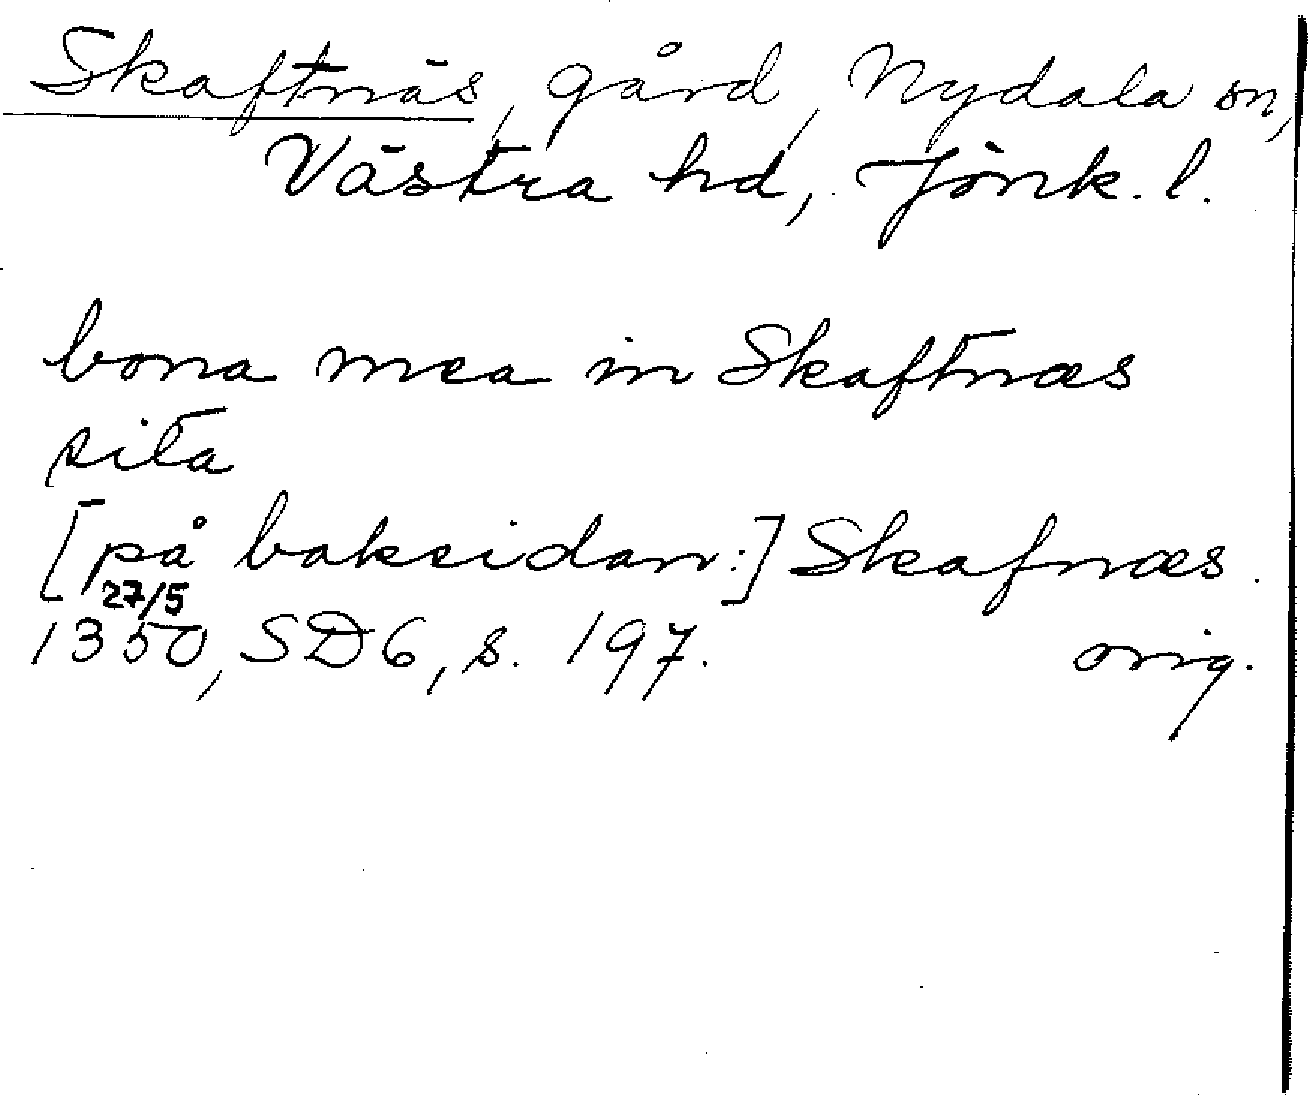 Skaftnäs, gård, Nydala sn,
Västra hd, Jönk. l.
bona mea in Skaftnæs
sita
[på baksidan:] Skafnæs.
27/5
1350, SD6, s. 197. orig.